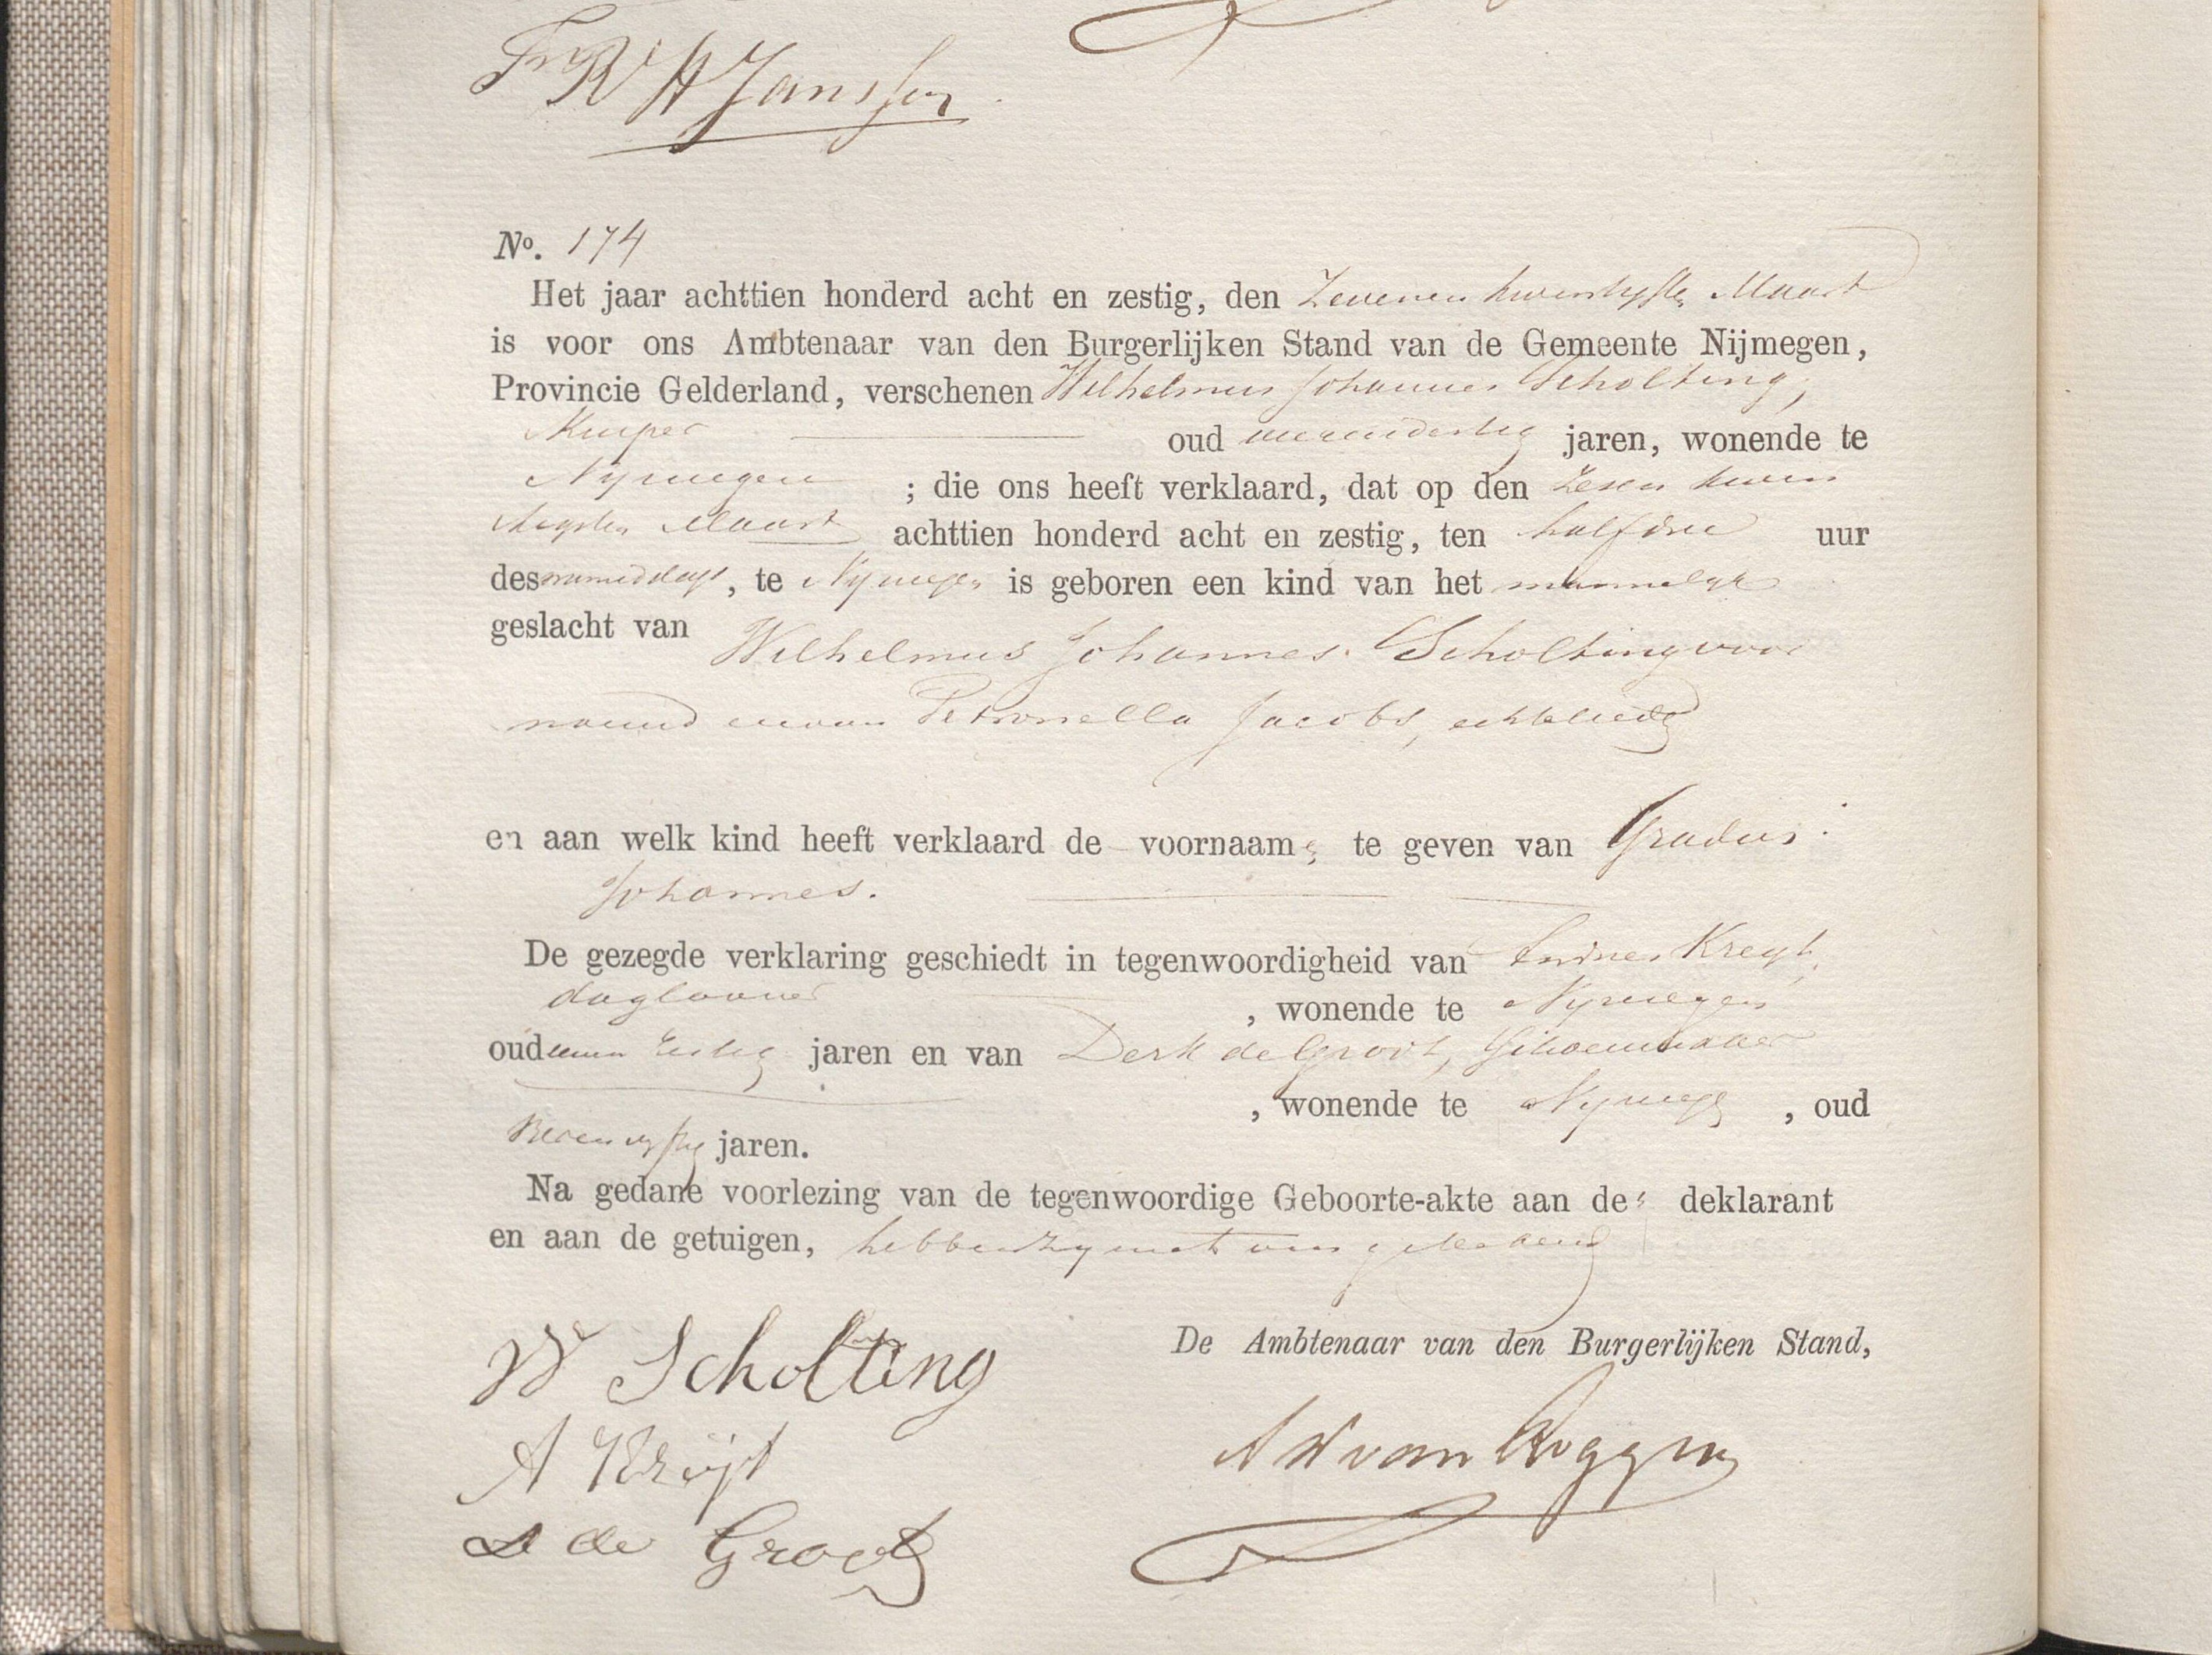 H Janssen
No. 174
Het jaar achttien honderd acht en zestig, den Zevenen twintigsten Maart
is voor ons Ambtenaar van den Burgerlijken Stand van de Gemeente Nijmegen,
Provincie Gelderland, verschenen Wilhelmus Johannes Scholting,
Kuiper oud vierendertig jaren, wonende te
Nijmegen ; die ons heeft verklaard, dat op den Zesen twin
tigsten Maart achttien honderd acht en zestig, ten half drie uur
des namiddags, te Nijmegen is geboren een kind van het mannelijk
geslacht van Wilhelmus Johannes Scholting voor
noemd en van Petronella Jacobs, echtelieden
en aan welk kind heeft verklaard de voornaamen te geven van Gradus
Johannes.
De gezegde verklaring geschiedt in tegenwoordigheid van Andries Kregt,
daglooner , wonende te Nijmegen
oud zestig jaren en van Derk de Groot, Schoenmaker
, wonende te Nijmegen , oud
jaren.
Na gedane voorlezing van de tegenwoordige Geboorte-akte aan den deklarant
en aan de getuigen, hebben zij met ons geteekend
W Scholting De Ambtenaar van den Burgerlijken Stand,
A Krijt
D de Groot